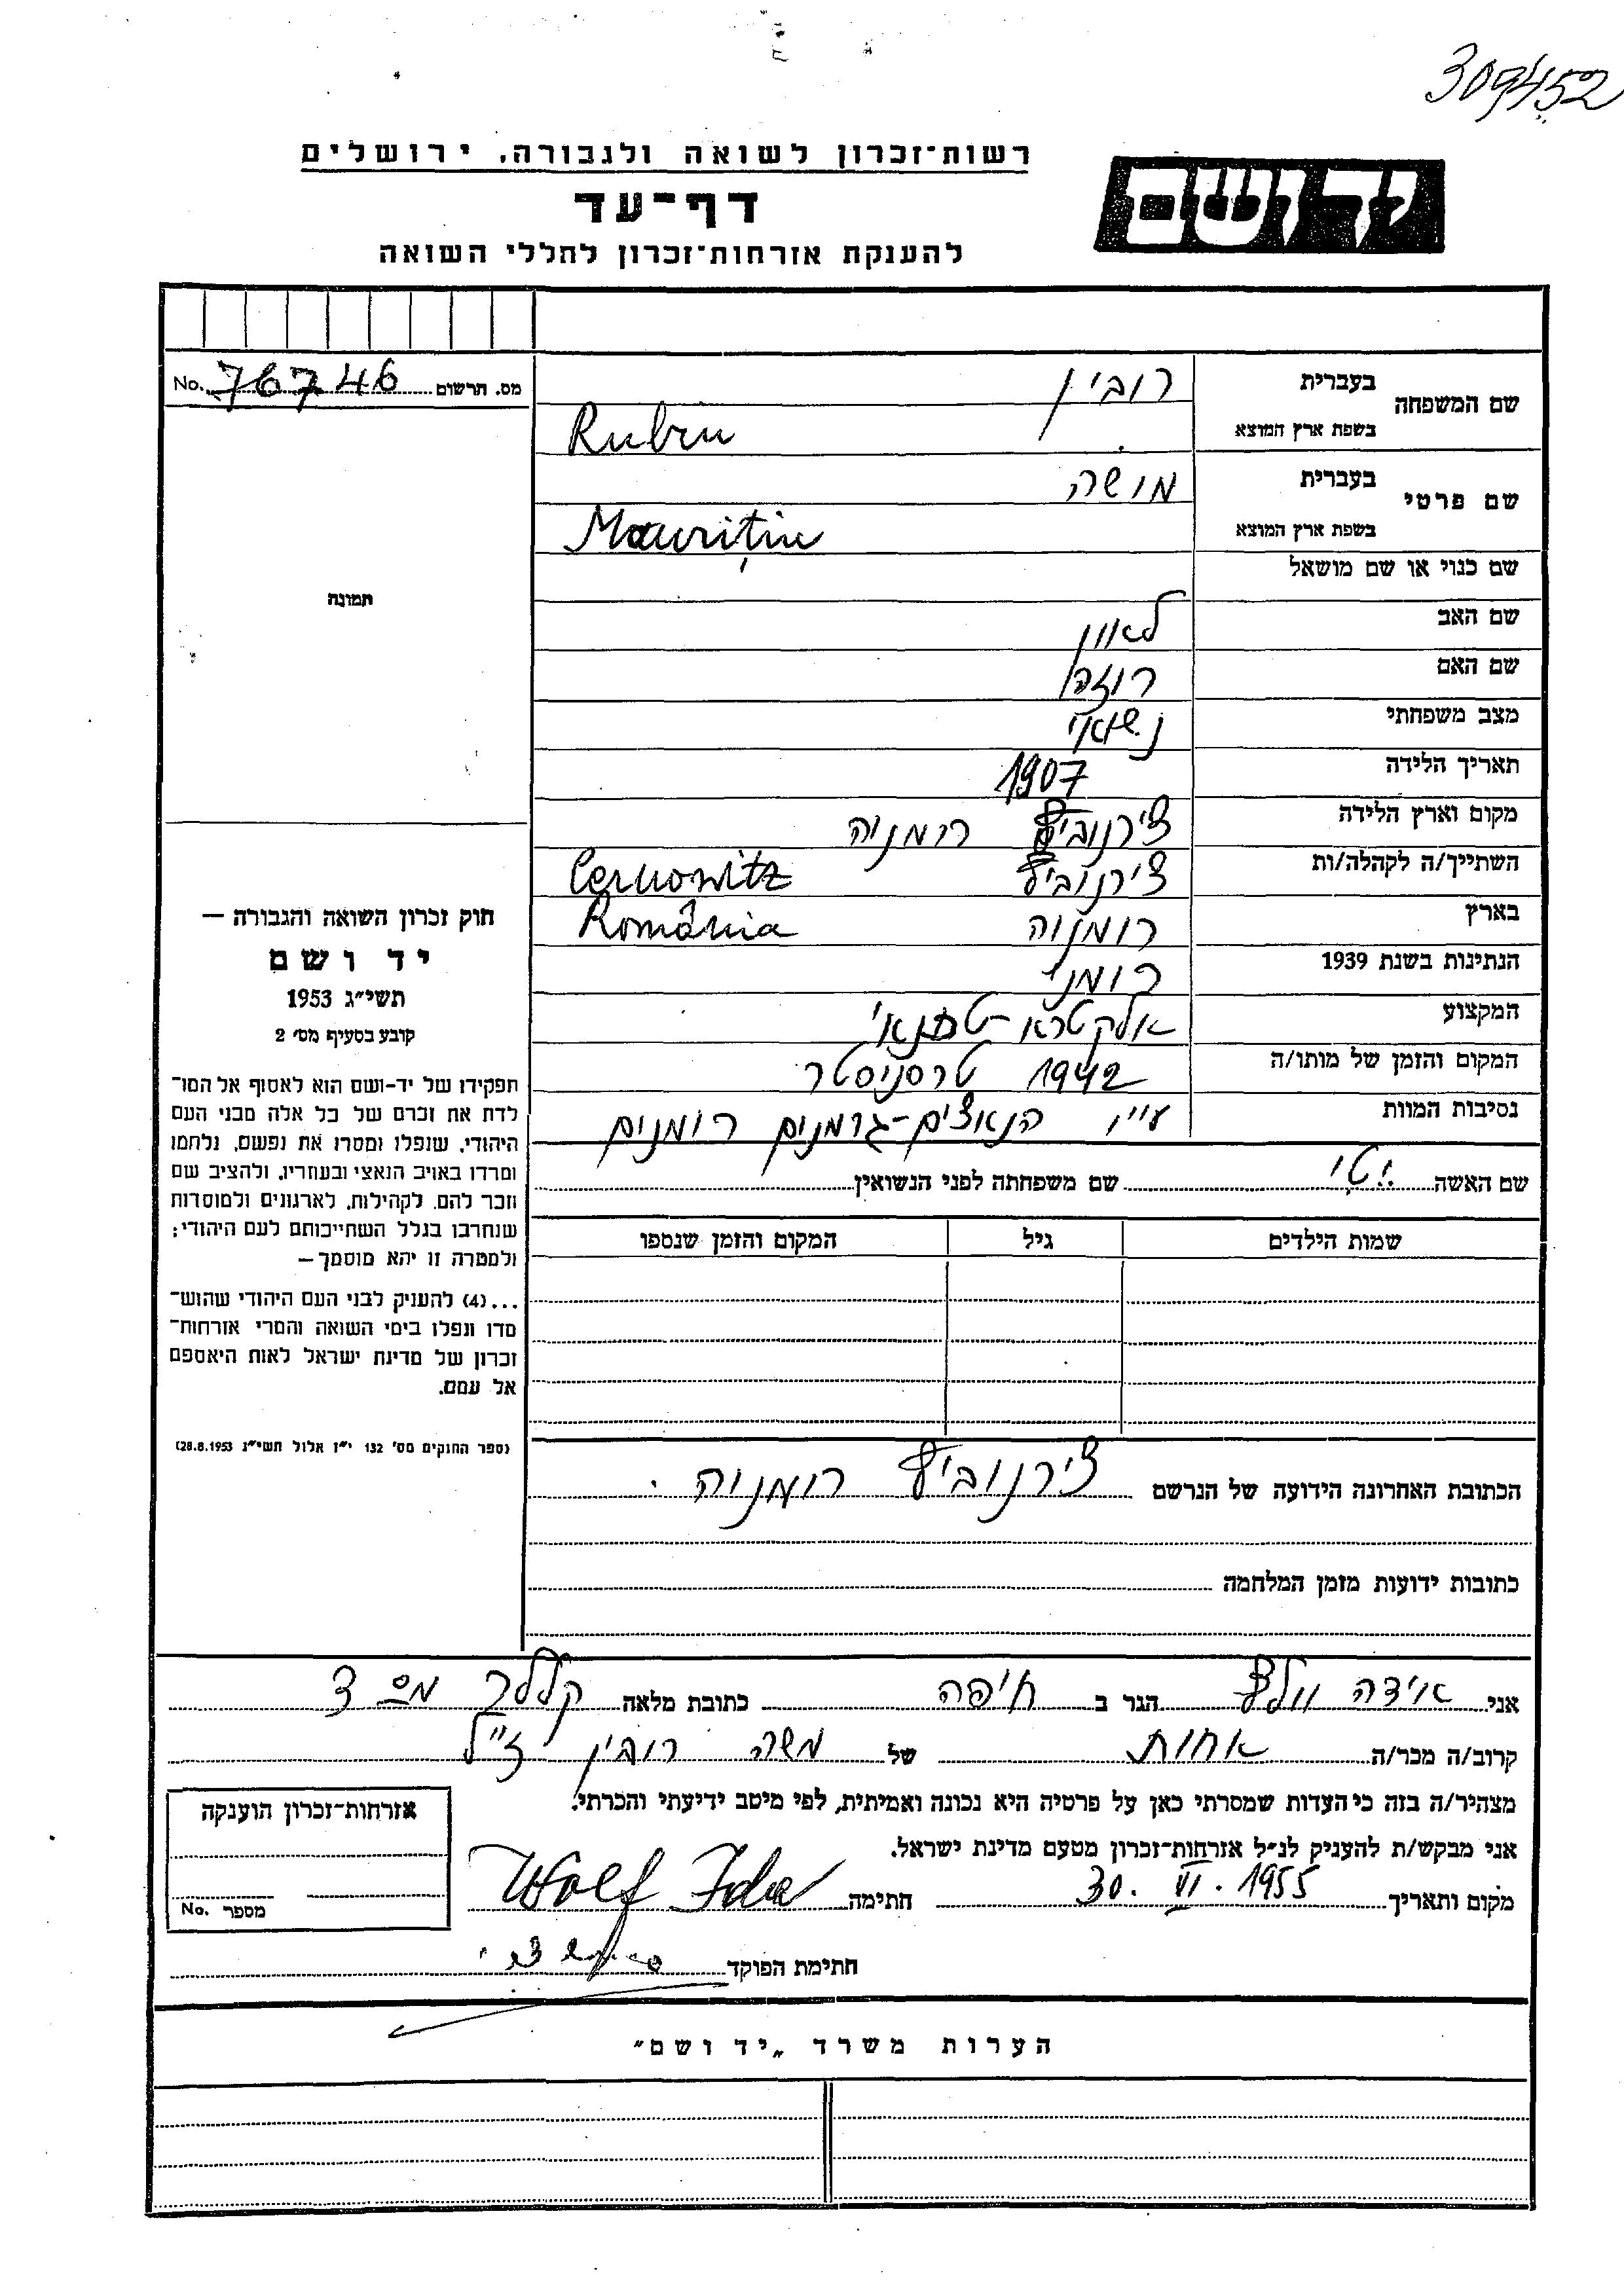 309452
רשות־זכרון לשואה ולגבורה, ירושלים
יד ושם
דף־עד
להענקת אזרחות־זכרון לחללי השואה
מס. תרשום 76746 No.
שם המשפחה
בעברית רובין
בשפת ארץ המוצא Rubin
שם פרטי
בעברית מושה
בשפת ארץ המוצא Maurițiu
שם כנוי או שם מושאל
שם האב לאון
שם האם רוזה
מצב משפחתי נשואי
תאריך הלידה 1907
מקום וארץ הלידה צ'ירנוביץ רומניה
השתייך/ה לקהלה/ות צ'ירנוביץ Cernowitz
בארץ רומניה România
הנתינות בשנת 1939 רומני
המקצוע
המקום והזמן של מותו/ה 1942 טרסניסטר
נסיבות המוות ע"י הנאצים-גרמנים רומנים
שם האשה יטי שם משפחתה לפני הנשואין
שמות הילדים גיל המקום והזמן שנספו
הכתובת האחרונה הידועה של הנרשם צירנוביץ רומניה
כתובות ידועות מזמן המלחמה
תמונה
חוק זכרון השואה והגבורה —
יד ושם
תשי״ג 1953
קובע בסעיף מס׳ 2
תפקידו של יד-ושם הוא לאסוף אל המו־
לדת את זכרם של כל אלה מבני העם
היהודי, שנפלו ומסרו את נפשם, נלחמו
ומרדו באויב הנאצי ובעוזריו, ולהציב שם
וזכר להם, לקהילות, לארגונים ולמוסדות
שנחרבו בגלל השתייכותם לעם היהודי;
ולמטרה זו יהא מוסמך —
...(4) להעניק לבני העם היהודי שהוש־
מדו ונפלו בימי השואה והמרי אזרחות־
זכרון של מדינת ישראל לאות היאספם
אל עמם.
(ספר החוקים מס׳ 132 י״ז אלול תשי״ג 28.8.1953)
אני אידה וולף הגר ב חיפה כתובת מלאה
קרוב/ה מכר/ה אחות של משה רובין ז"ל
מצהיר/ה בזה כי העדות שמסרתי כאן על פרטיה היא נכונה ואמיתית, לפי מיטב ידיעתי והכרתי.
אני מבקש/ת להעניק לנ״ל אזרחות־זכרון מטעם מדינת ישראל.
מקום ותאריך 30. VI. 1955 חתימה Wolf Ida
חתימת הפוקד
אזרחות־זכרון הוענקה
מספר No.
הערות משרד „יד ושם״